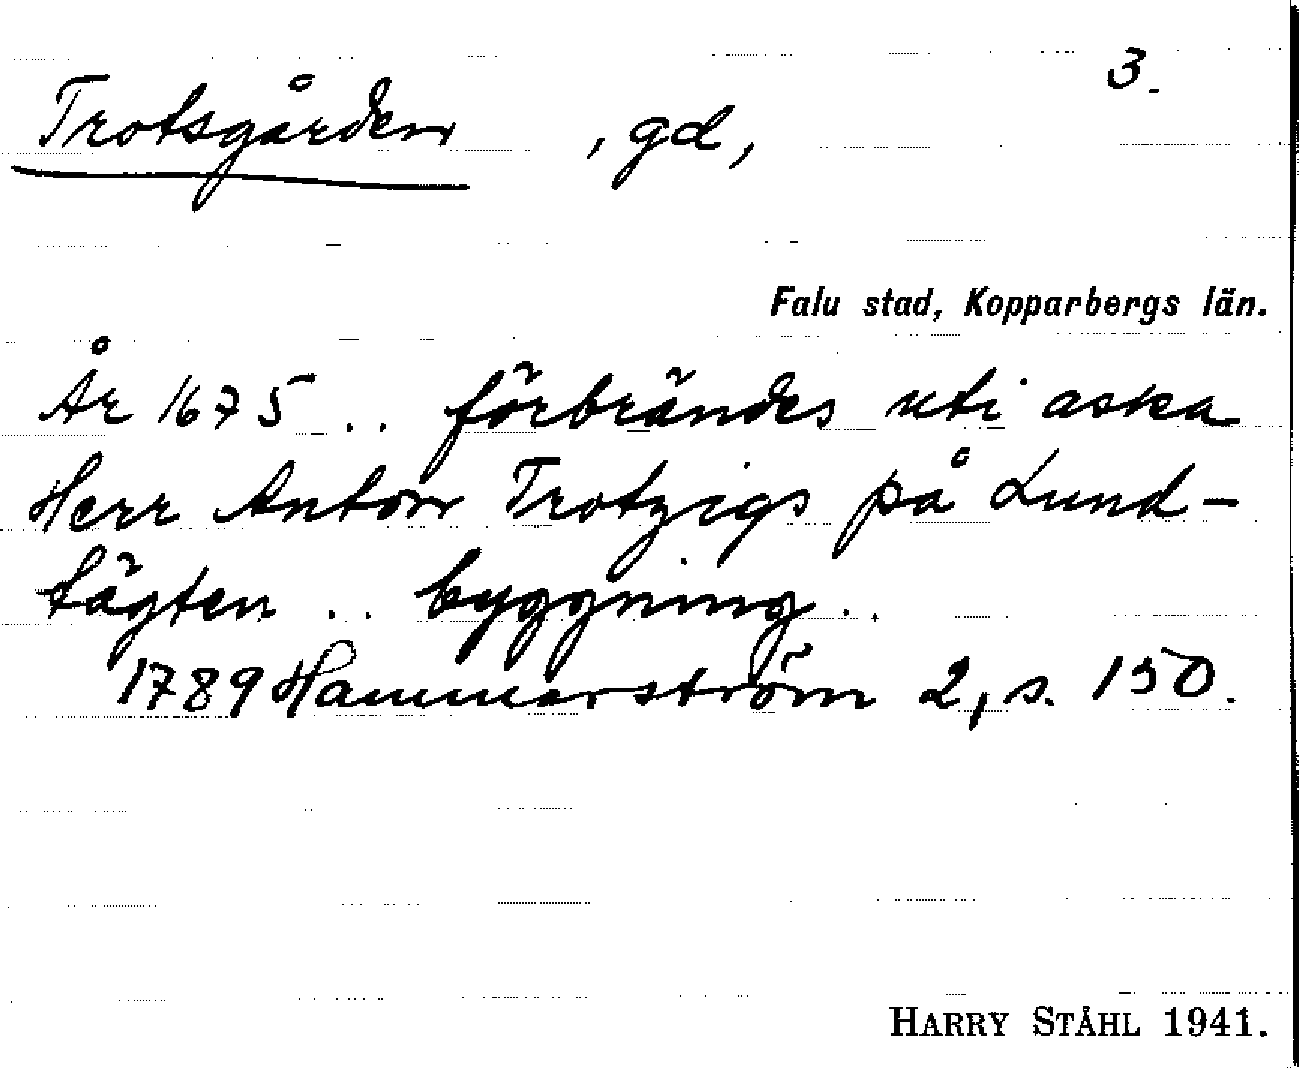 3.
Trotsgården , gd,
Falu stad, Kopparbergs län.
År 1675 .. förbrändes uti aska
Herr Anton Trotzigs på Lund-
tägten .. byggning ..
1789 Hammarström 2, s. 150.
HARRY STÅHL 1941.